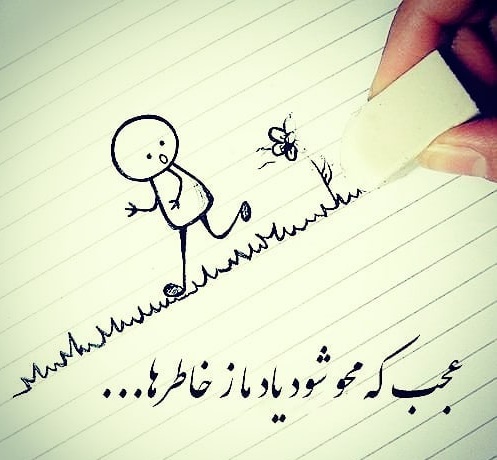 عجب که محو شود یاد ما ز خاطرها...